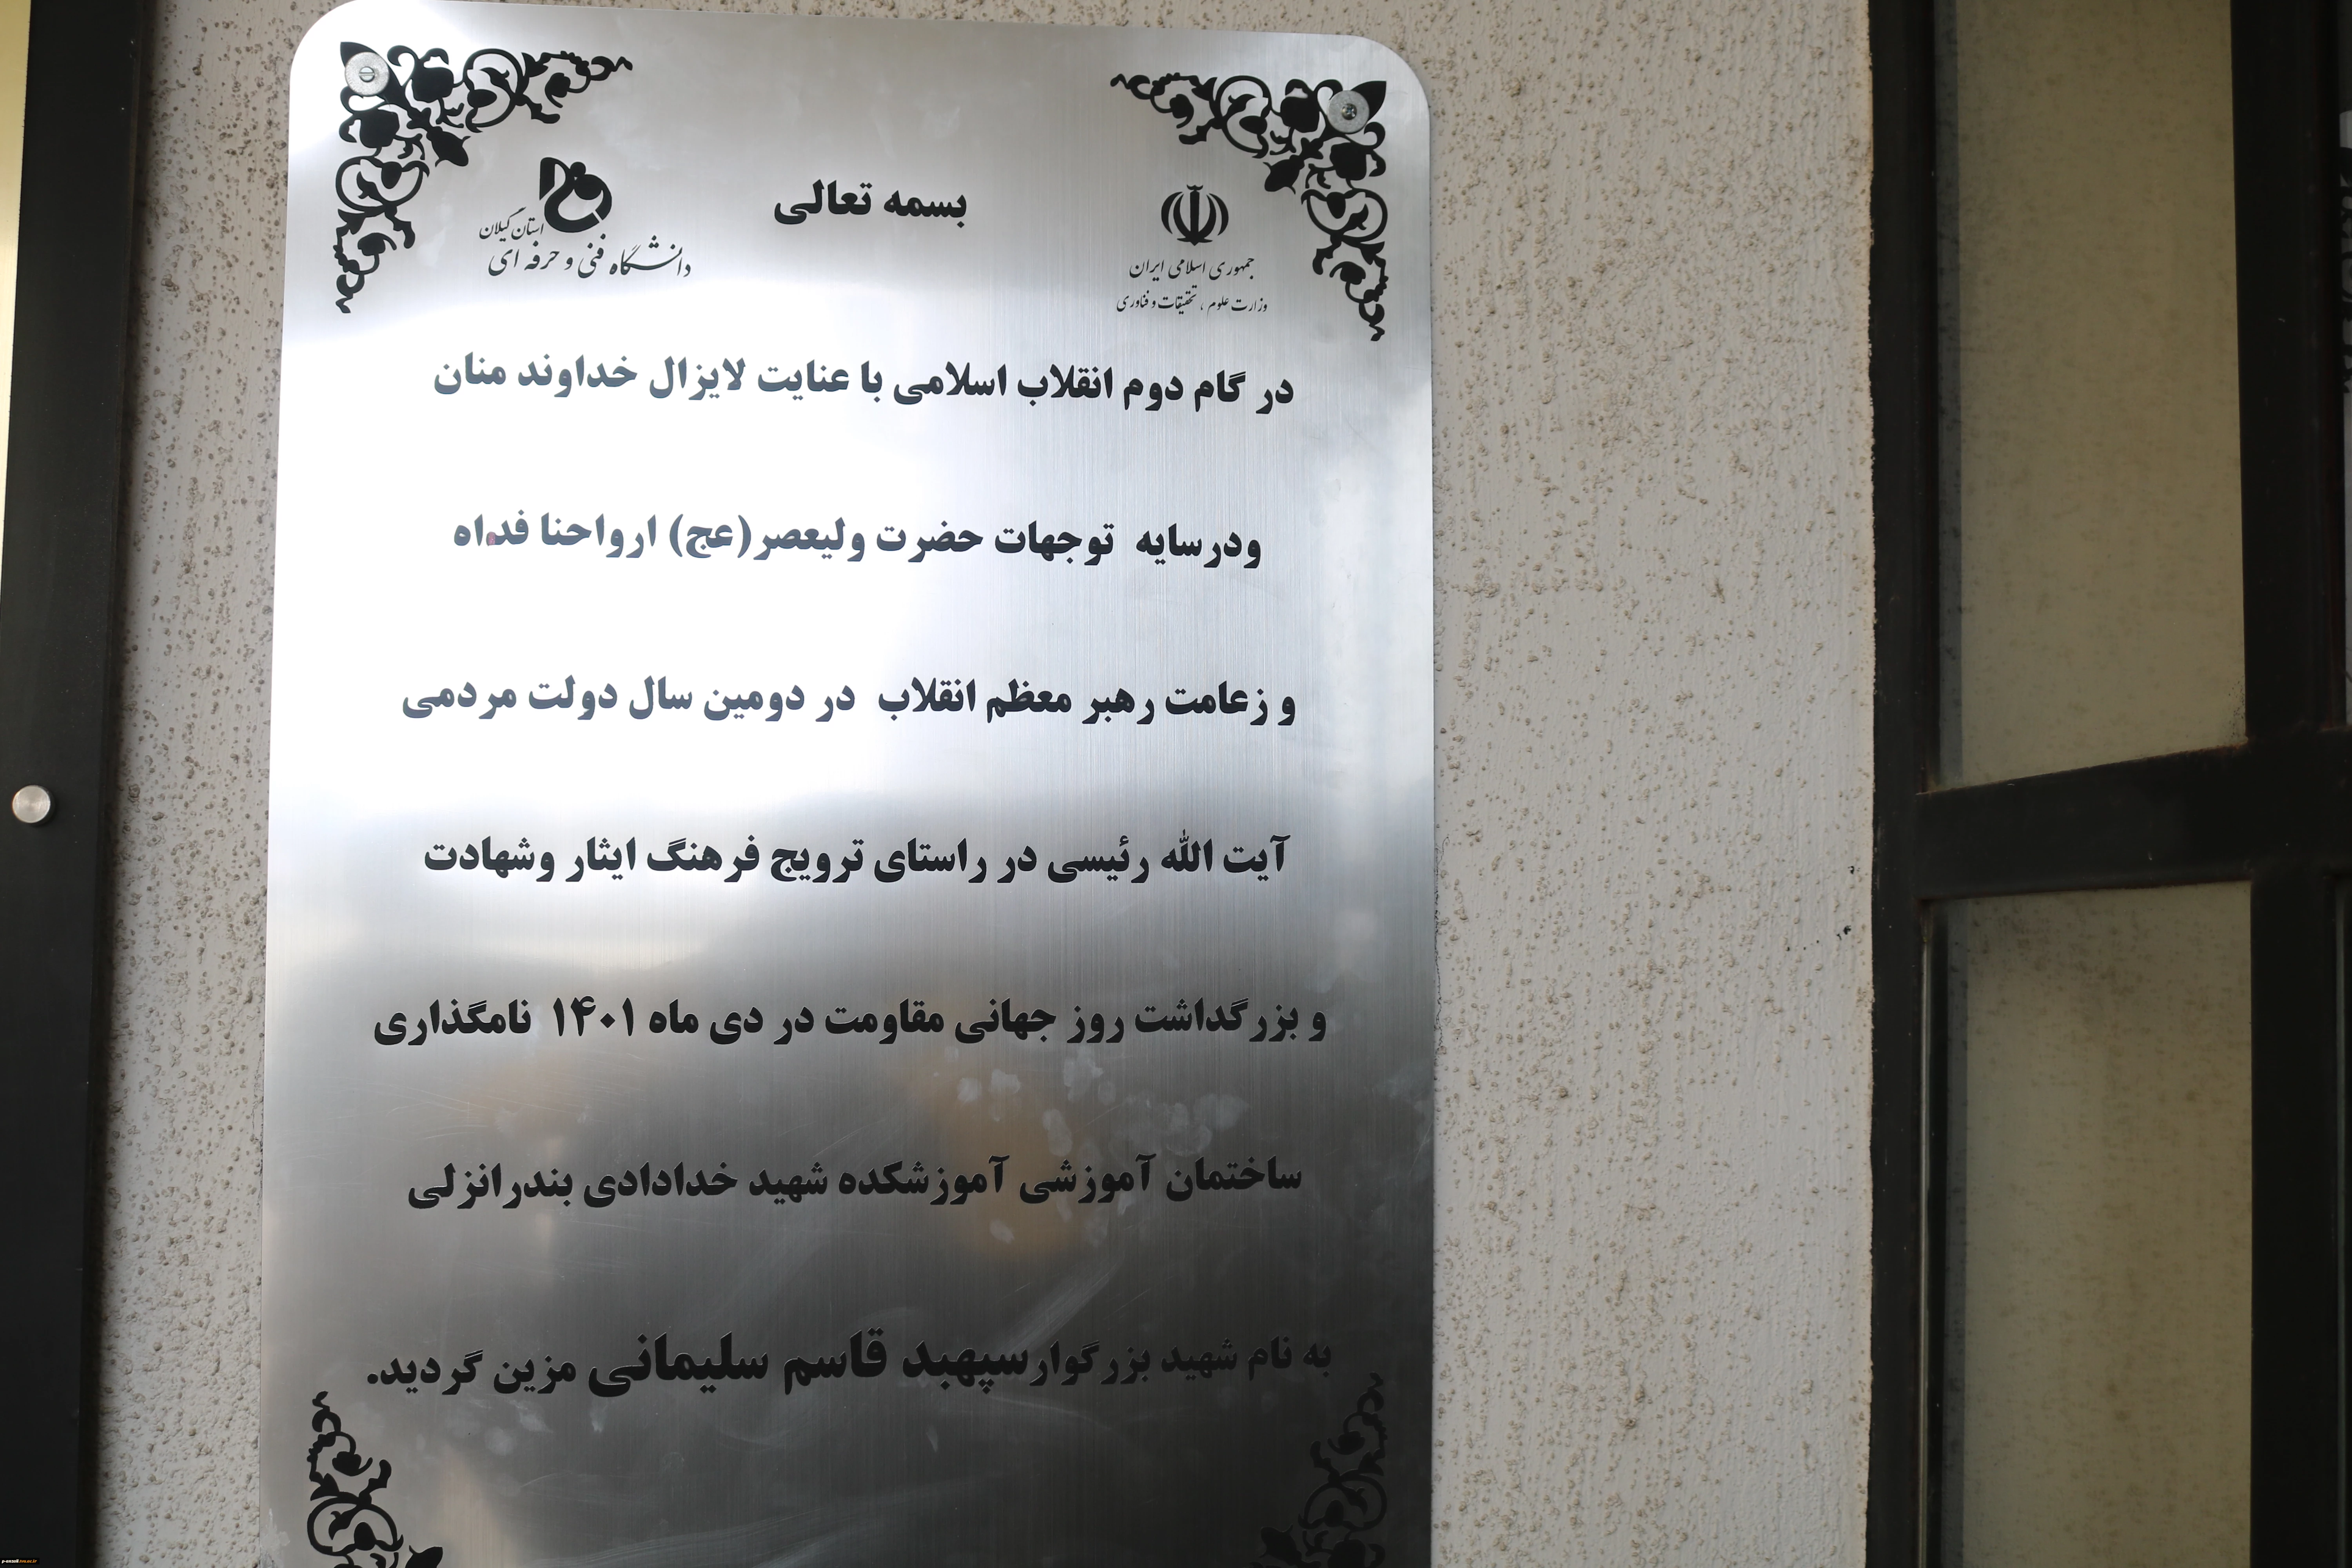 بسمه تعالی
جمهوری اسلامی ایران
وزارت علوم ، تحقیقات و فناوری
استان گیلان
دانشگاه فنی و حرفه ای
در گام دوم انقلاب اسلامی با عنایت لایزال خداوند منان
ودرسایه توجهات حضرت ولیعصر(عج) ارواحنا فداه
و زعامت رهبر معظم انقلاب در دومین سال دولت مردمی
آیت الله رئیسی در راستای ترویج فرهنگ ایثار وشهادت
و بزرگداشت روز جهانی مقاومت در دی ماه ۱۴۰۱ نامگذاری
ساختمان آموزشی آموزشکده شهید خدادادی بندرانزلی
به نام شهید بزرگوارسپهبد قاسم سلیمانی مزین گردید.